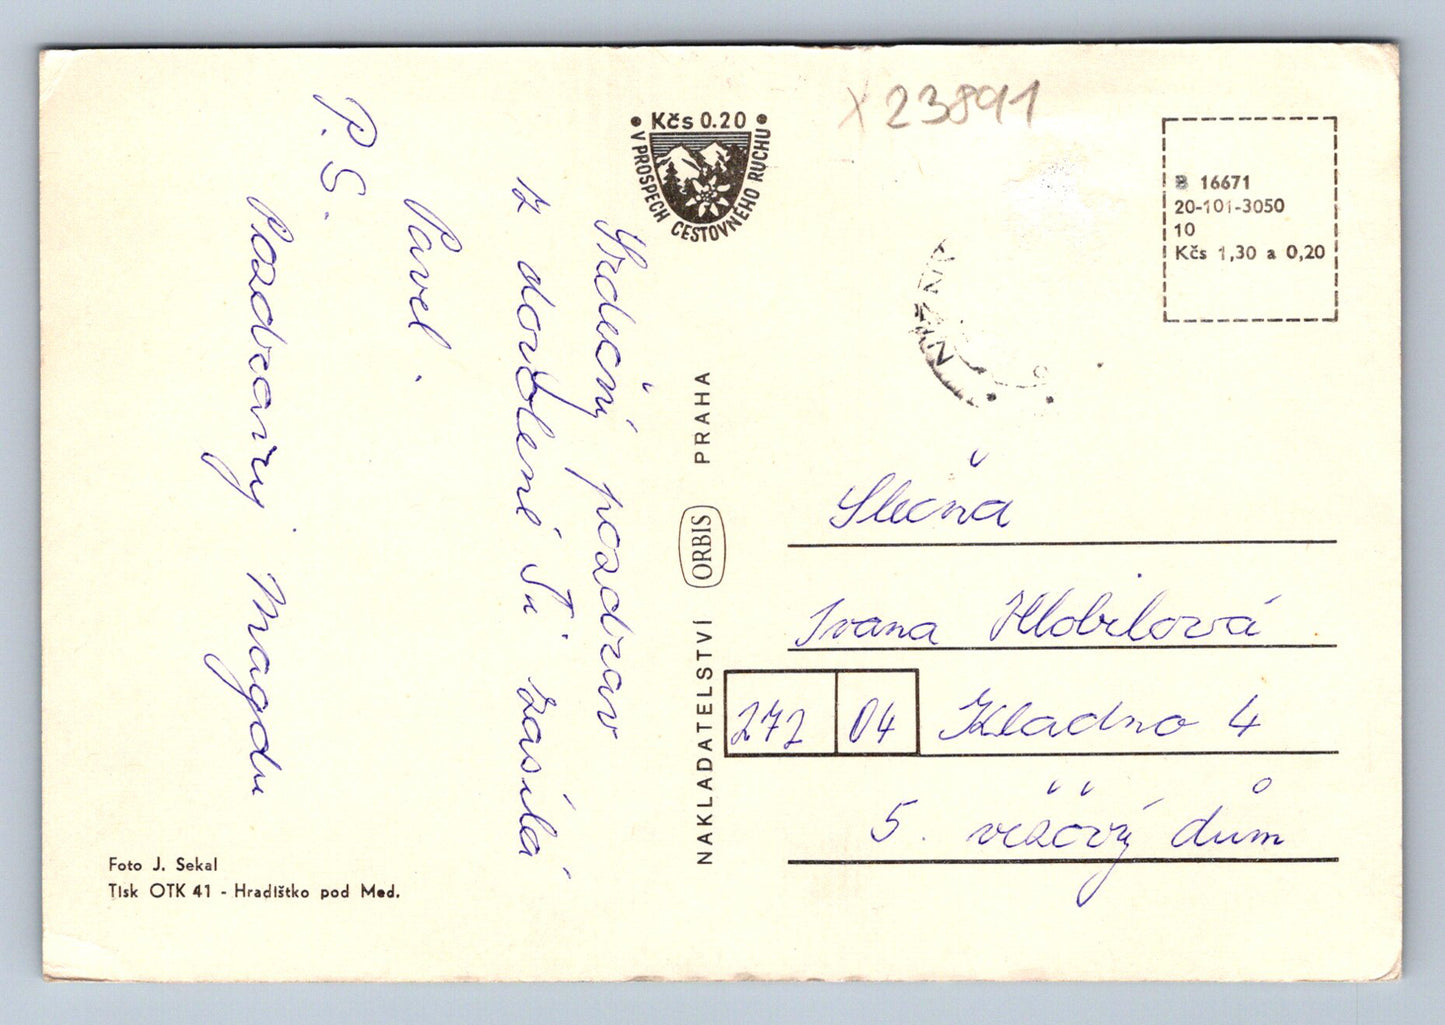 Srdečný pozdrav
z dovolené Ti zasílá
Pavel.
P.S.
Pozdravuj Magdu
Foto J. Sekal
Tisk OTK 41 - Hradištko pod Med.
Kčs 0.20
V PROSPECH CESTOVNÉHO RUCHU
NAKLADATELSTVÍ ORBIS PRAHA
X23891
B 16671
20-101-3050
10
Kčs 1,30 a 0,20
Slečna
Ivana Hlobilová
272 04 Kladno 4
5. věžový dům